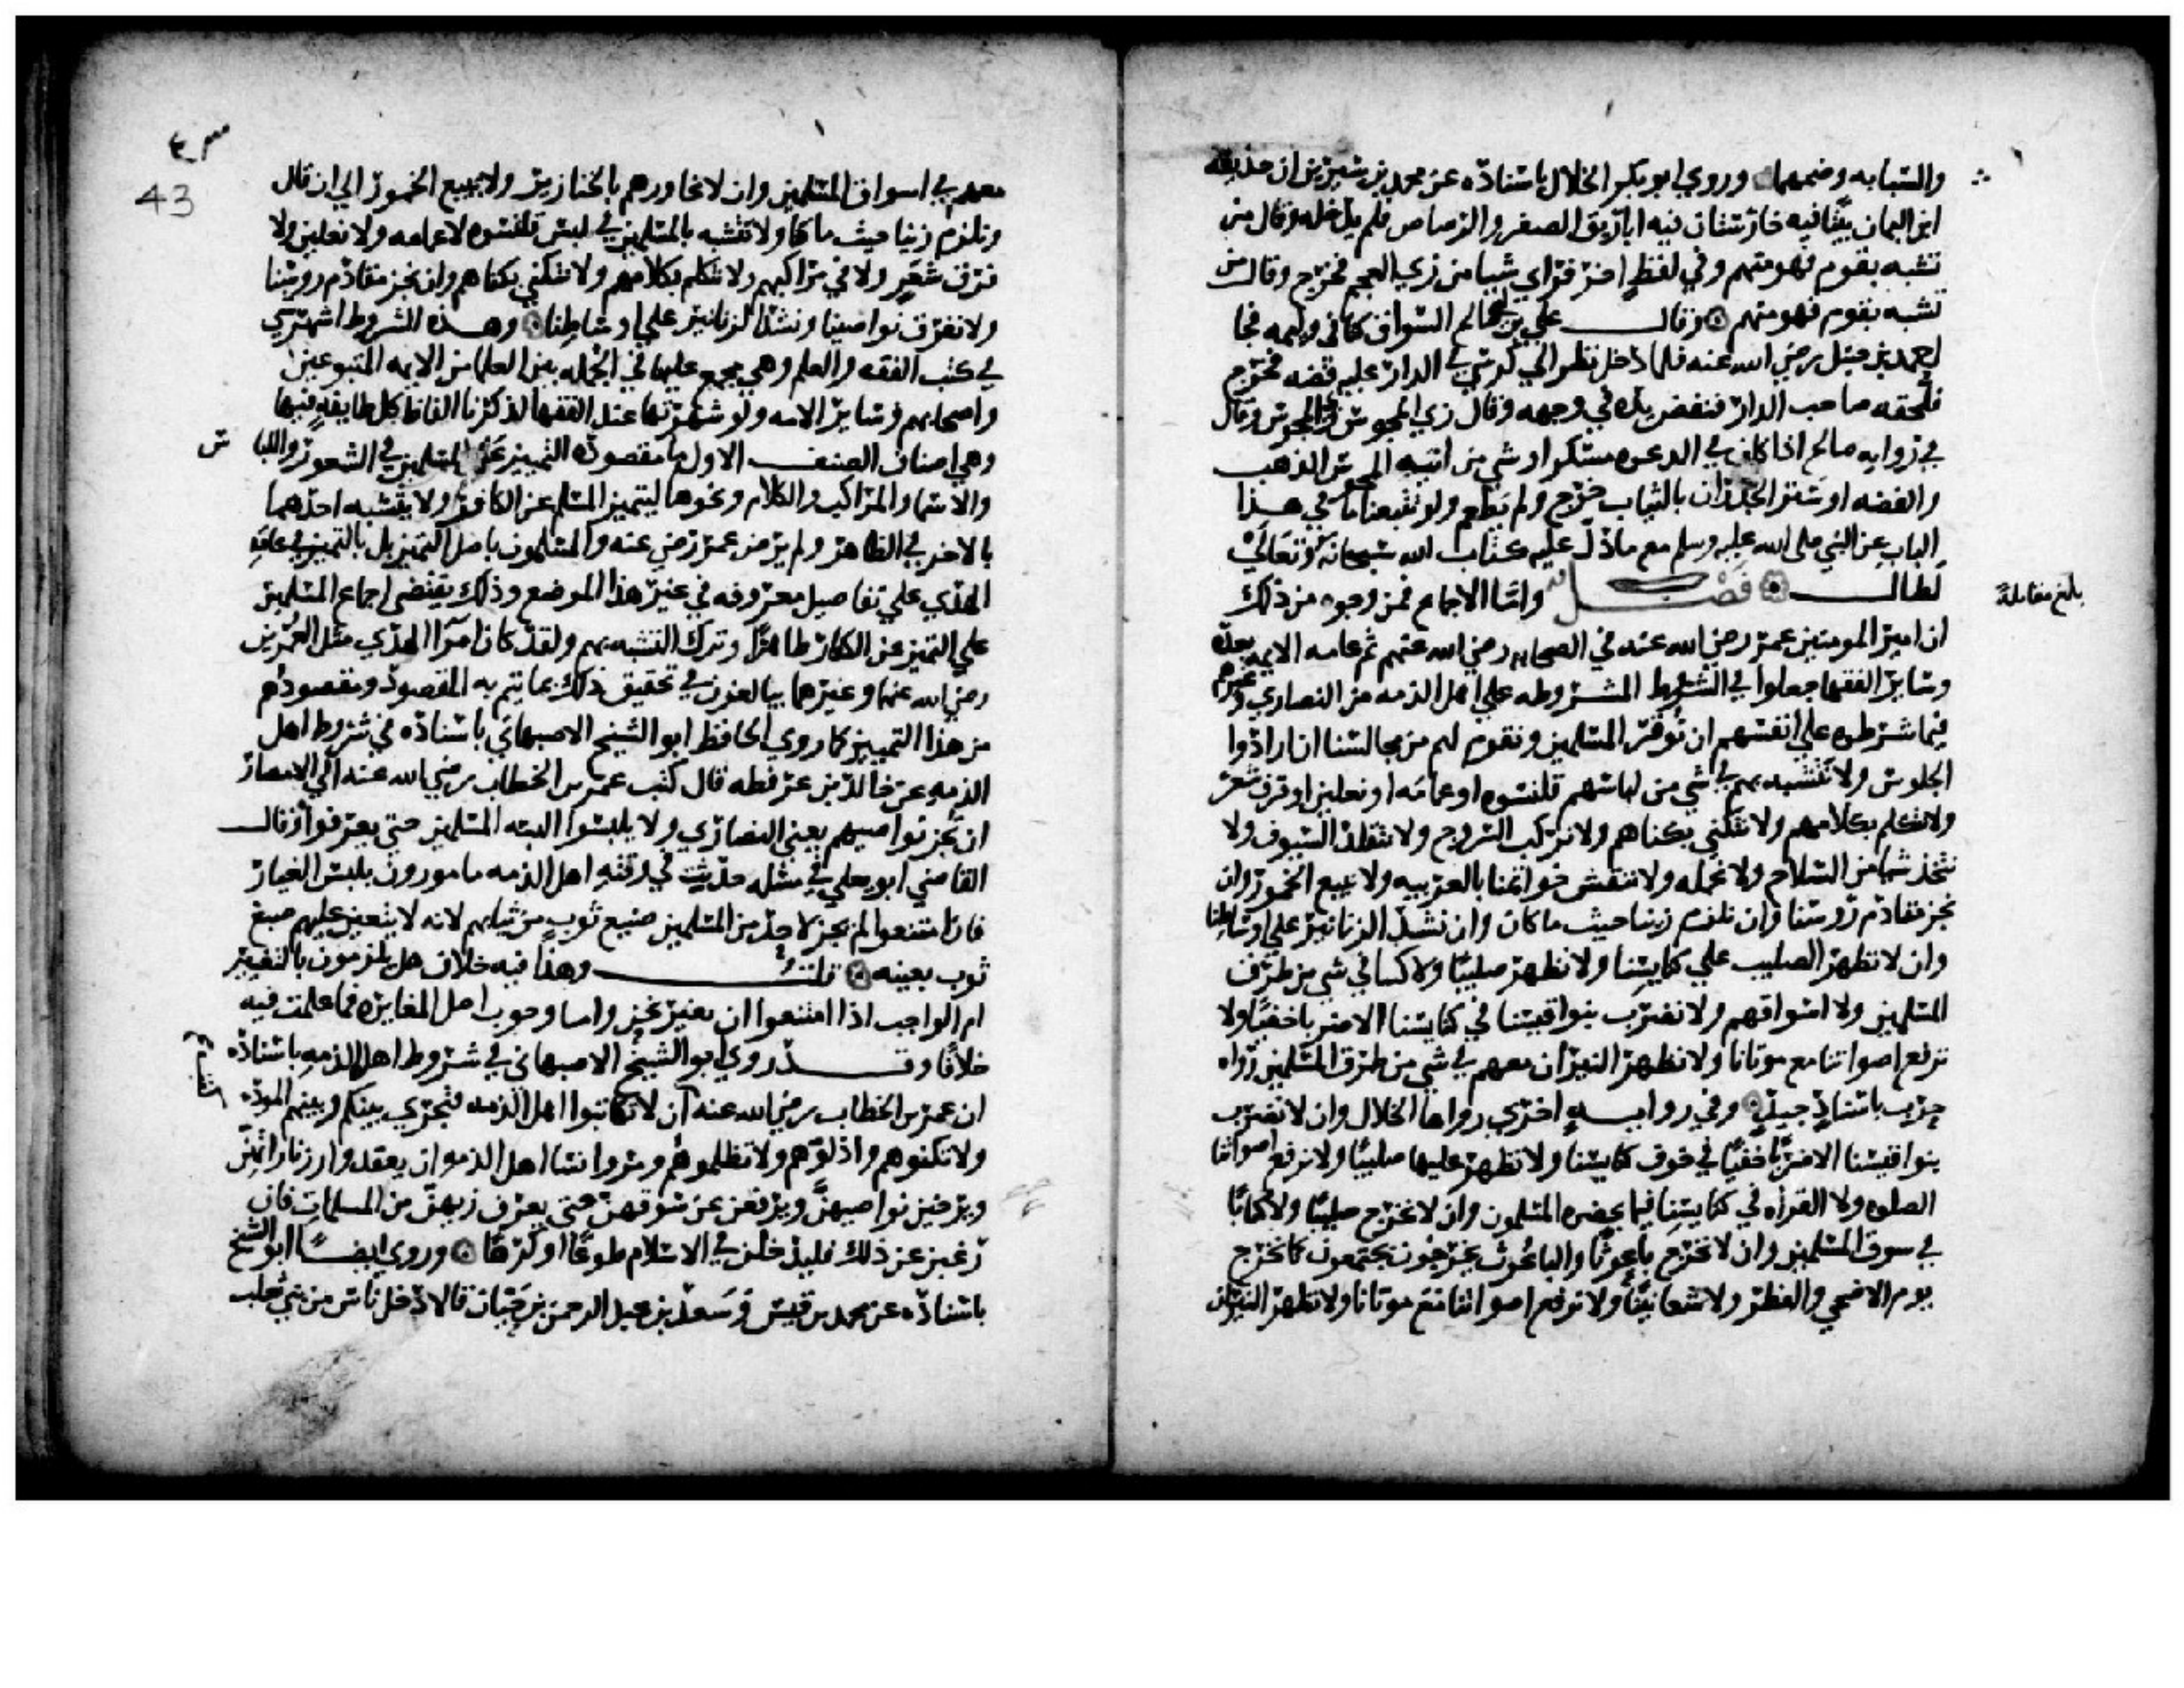 والشبابه وضمهما وروي ابو بكر الخلال باسناده عن محمد بن سيرين ان حذيفه
ابن اليمان بيتا فيه فيه اباريق الصفر والرصاص فلم يدخله وقال من
تشبه بقوم فهو منهم وفي لفظ اخر فراي شيا من زي العجم فخرج وقال من
تشبه بقوم فهو منهم وقال علي بن صالح السواق كنا في وليمه فجا
احمد بن حنبل رضي الله عنه فلما دخل نظر الي كرسي في الدار عليه فضه فخرج
فلحقه صاحب الدار فنفض يده في وجهه وقال زي المجوس زي المجوس وقال
في روايه صالح اذا كان في الدعوه مسكر او شي من انيه المجوس الذهب
والفضه او ستر الجدران بالثياب خرج ولم يطعم ولو تتبعنا ما في هذا
الباب عن النبي صلى الله عليه وسلم مع ما دل عليه كتاب الله سبحانه وتعالي
لطال فصل واما الاجماع فمن وجوه من ذلك
بلغ مقابلة
ان امير المومنين عمر رضي الله عنه في الصحابه رضي الله عنهم ثم عامه الايمه بعده
وسائر الفقها جعلوا في الشروط المشروطه علي اهل الذمه من النصاري وغيرهم
فيما شرطوه علي انفسهم ان نوقر المسلمين ونقوم لهم من مجالسنا ان ارادوا
الجلوس ولا نتشبه بهم في شي من لباسهم قلنسوه او عمامه او نعلين او فرق شعر
ولا نتكلم بكلامهم ولا نتكني بكناهم ولا نركب السروج ولا نتقلد السيوف ولا
نتخذ شيا من السلاح ولا نحمله ولا ننقش خواتمنا بالعربيه ولا نبيع الخمور وان
نجز مقادم روسنا وان نلزم زينا حيث ما كان وان نشد الزنانير علي اوساطنا
وان لا نظهر الصليب علي كنايسنا ولا نظهر صليبا ولا كتبا في شي من طرق
المسلمين ولا اسواقهم ولا نضرب بنواقيسنا في كنايسنا الا ضربا خفيا ولا
نرفع اصواتنا مع موتانا ولا نظهر النيران معهم في شي من طرق المسلمين رواه
حرب باسناد جيد وفي روايه اخري رواها الخلال وان لا نضرب
بنواقيسنا الا ضربا خفيا في جوف كنايسنا ولا نظهر عليها صليبا ولا نرفع اصواتنا
الصلوه ولا القراه في كنايسنا فيما يحضره المسلمون وان لا نخرج صليبا ولا كتابا
في سوق المسلمين وان لا نخرج باعوثا والباعوث يخرجون يجتمعون كما نخرج
يوم الاضحي والفطر ولا شعانينا ولا نرفع اصواتنا مع موتانا ولا نظهر النيران
٤٣
43
معهم في اسواق المسلمين وان لا نجاورهم بالخنازير ولا نبيع الخمور الي ان قال
ونلزم زينا حيث ما كنا ولا نتشبه بالمسلمين في لبس قلنسوه ولا عمامه ولا نعلين ولا
فرق شعر ولا في مراكبهم ولا نتكلم بكلامهم ولا نتكني بكناهم وان نجز مقادم روسنا
ولا نفرق نواصينا ونشد الزنانير علي اوساطنا وهذه الشروط اشهر شي
في كتب الفقه والعلم وهي مجمع عليها في الجمله بين العلما من الايمه المتبوعين
واصحابهم وسائر الامه ولو شهرتها عند الفقها لذكرنا الفاظ كل طايفه فيها
وهي اصناف الصنف الاول ما مقصوده التمييز عن المسلمين في الشعور واللباس
والاسما والمراكب والكلام ونحوها ليتميز المسلم عن الكافر ولا يتشبه احدهما
بالاخر في الظاهر ولم يرض عمر رضي الله عنه والمسلمون باصل التميز بل بالتميز في عامه
الهدي علي تفاصيل معروفه في غير هذا الموضع وذلك يقتضي اجماع المسلمين
علي التميز عن الكفار ظاهرا وترك التشبه بهم ولقد كان امرا الهدي مثل العمرين
رضي الله عنهما وغيرهما يبالغون في تحقيق ذلك بما يتم به المقصود ومقصودهم
من هذا التمييز كما روي الحافظ ابو الشيخ الاصبهاني باسناده في شروط اهل
الذمه عن خالد بن عرفطه قال كتب عمر بن الخطاب رضي الله عنه الي الامصار
ان تجز نواصيهم يعني النصاري ولا يلبسوا البسه المسلمين حتي يعرفوا وقال
القاضي ابو يعلي في مسله حدثت في وقته اهل الذمه مامورون بلبس الغيار
فان امتنعوا لم يجز لاحد من المسلمين صبغ ثوب من ثيابهم لانه لا يتعين عليهم صبغ
ثوب بعينه قلت وهذا فيه خلاف هل يلزمون بالتغيير
ام الواجب اذا امتنعوا ان نغير نحن واما وجوب اصل المغايره فما علمت فيه
خلافا وقد روي ابو الشيخ الاصبهاني في شروط اهل الذمه باسناده
ان عمر بن الخطاب رضي الله عنه ان لا تكاتبوا اهل الذمه فتجري بينكم وبينهم الموده
ولا تكنوهم واذلوهم ولا تظلموهم ومروا نسا اهل الذمه ان يعقدن زناراتهن
ويرخين نواصيهن ويرفعن عن سوقهن حتي يعرف زيهن من المسلمات فان
رغبن عن ذلك فليدخلن في الاسلام طوعا او كرها وروي ايضا ابو الشيخ
باسناده عن محمد بن قيس وسعد بن عبد الرحمن بن حبان قالا دخل ناس من بني تغلب